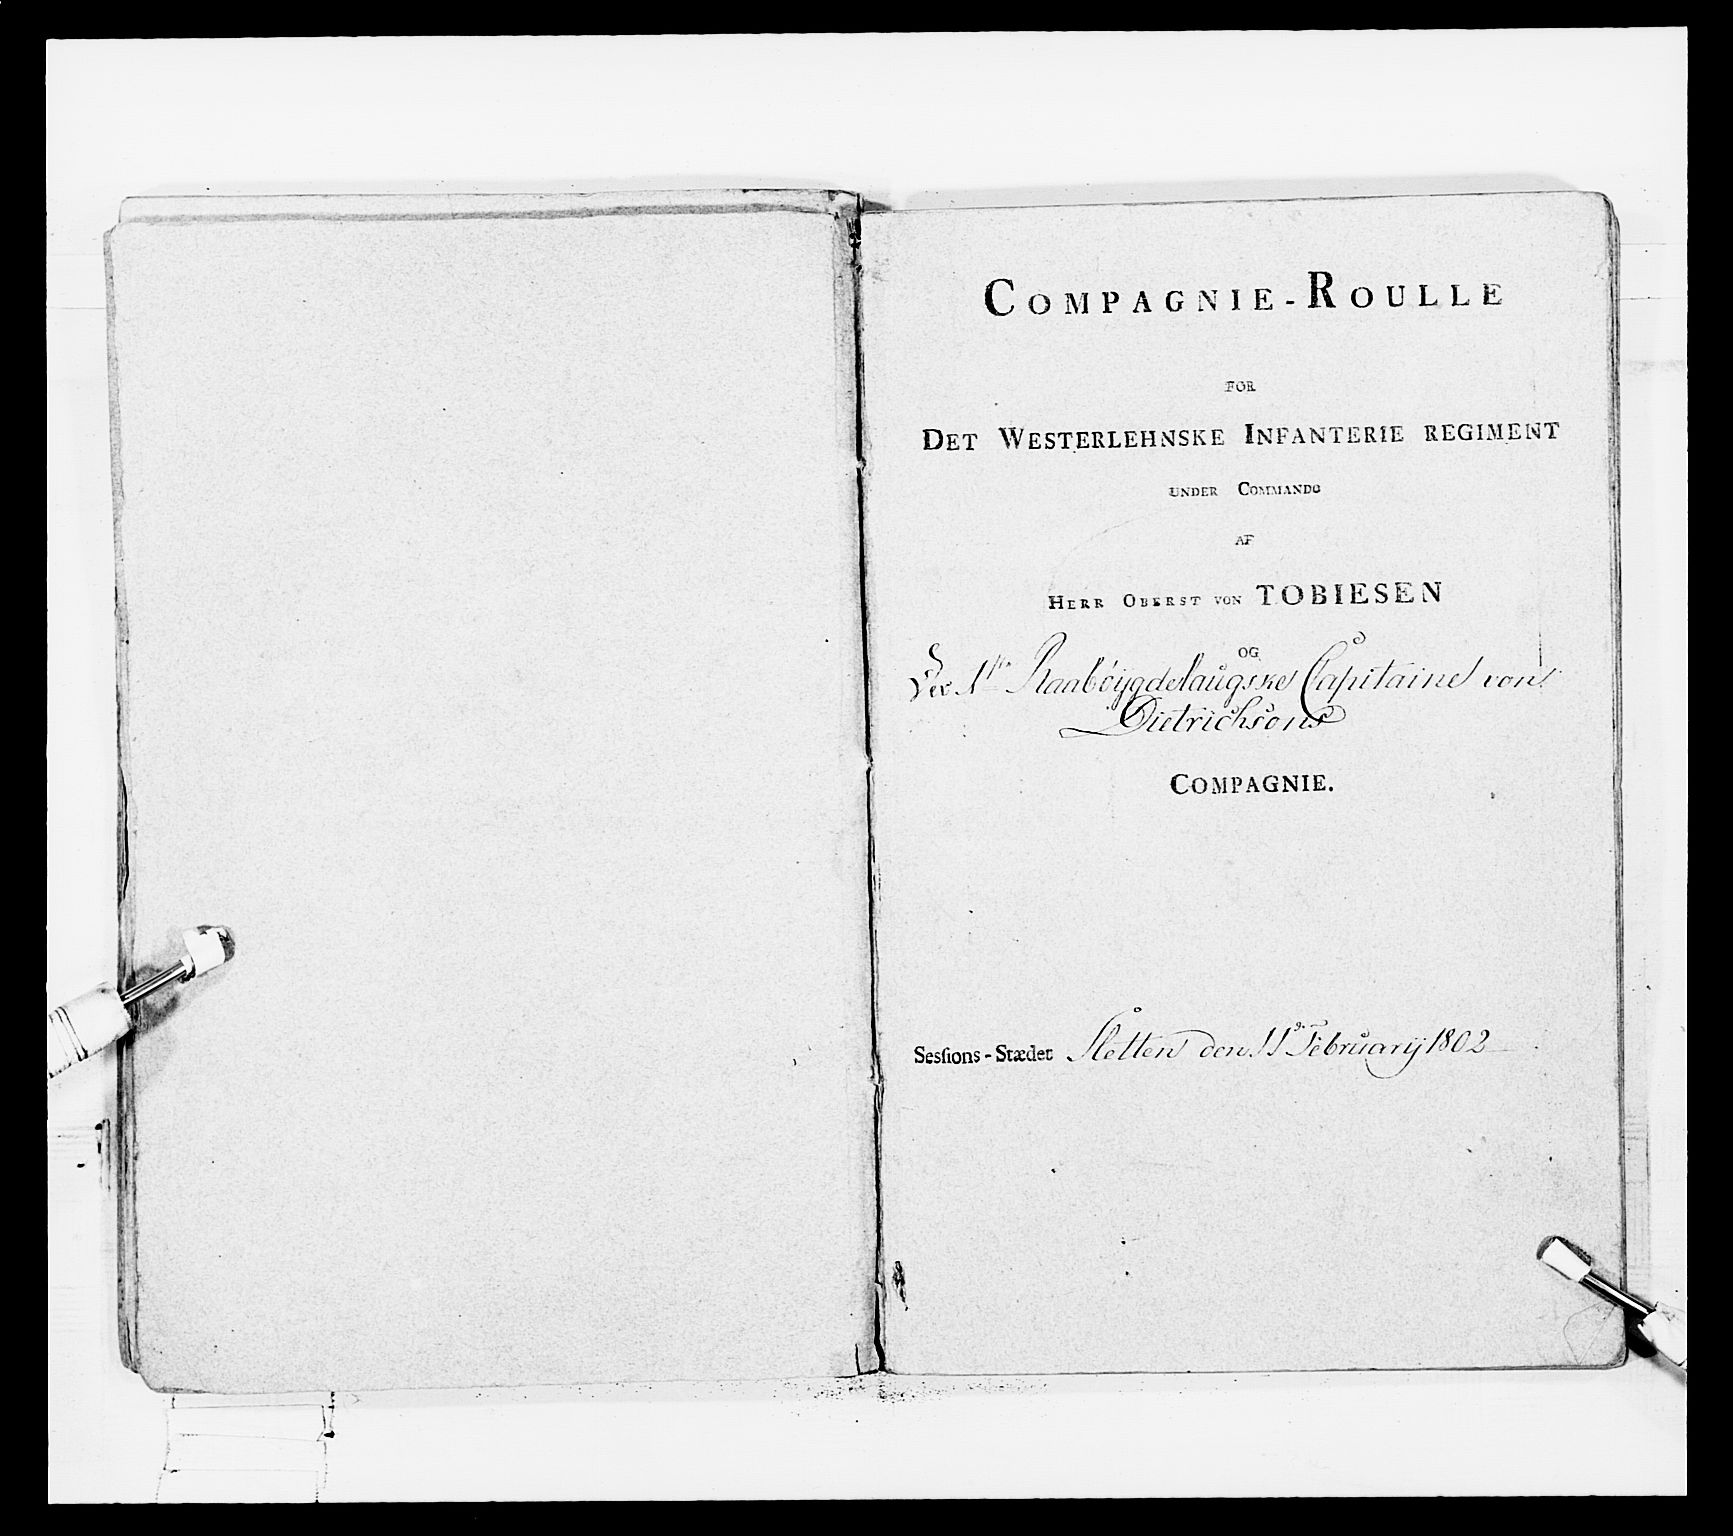 COMPAGNIE-ROULLE
FOR
DET WESTERLEHNSKE INFANTERIE REGIMENT
UNDER COMMANDO
AF
HERR OBERST VON TOBIESEN
OG
1ste Raaböygdelaugske Capitaine von
Dietrichsons
COMPAGNIE.
Sesſions-Stædet Sletten den 11de Februarij 1802